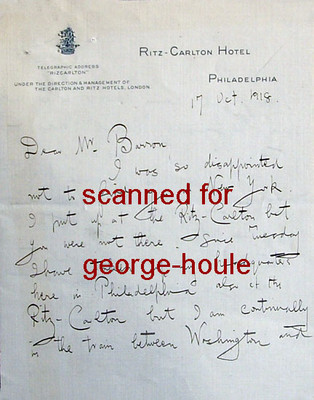 RITZ-CARLTON HOTEL
TELEGRAPHIC ADDRESS
"RIZCARLTON"
PHILADELPHIA
UNDER THE DIRECTION & MANAGEMENT OF
THE CARLTON AND RITZ HOTELS, LONDON.
17 Oct. 1918.
Dear Mr. Barron
I was so disappointed
not to New York.
scanned for
I put up at the Ritz-Carlton but
you were not there. Since Tuesday
I have headquarters
george-houle
here in Philadelphia also at the
Ritz-Carlton but I am continually
in the train between Washington and